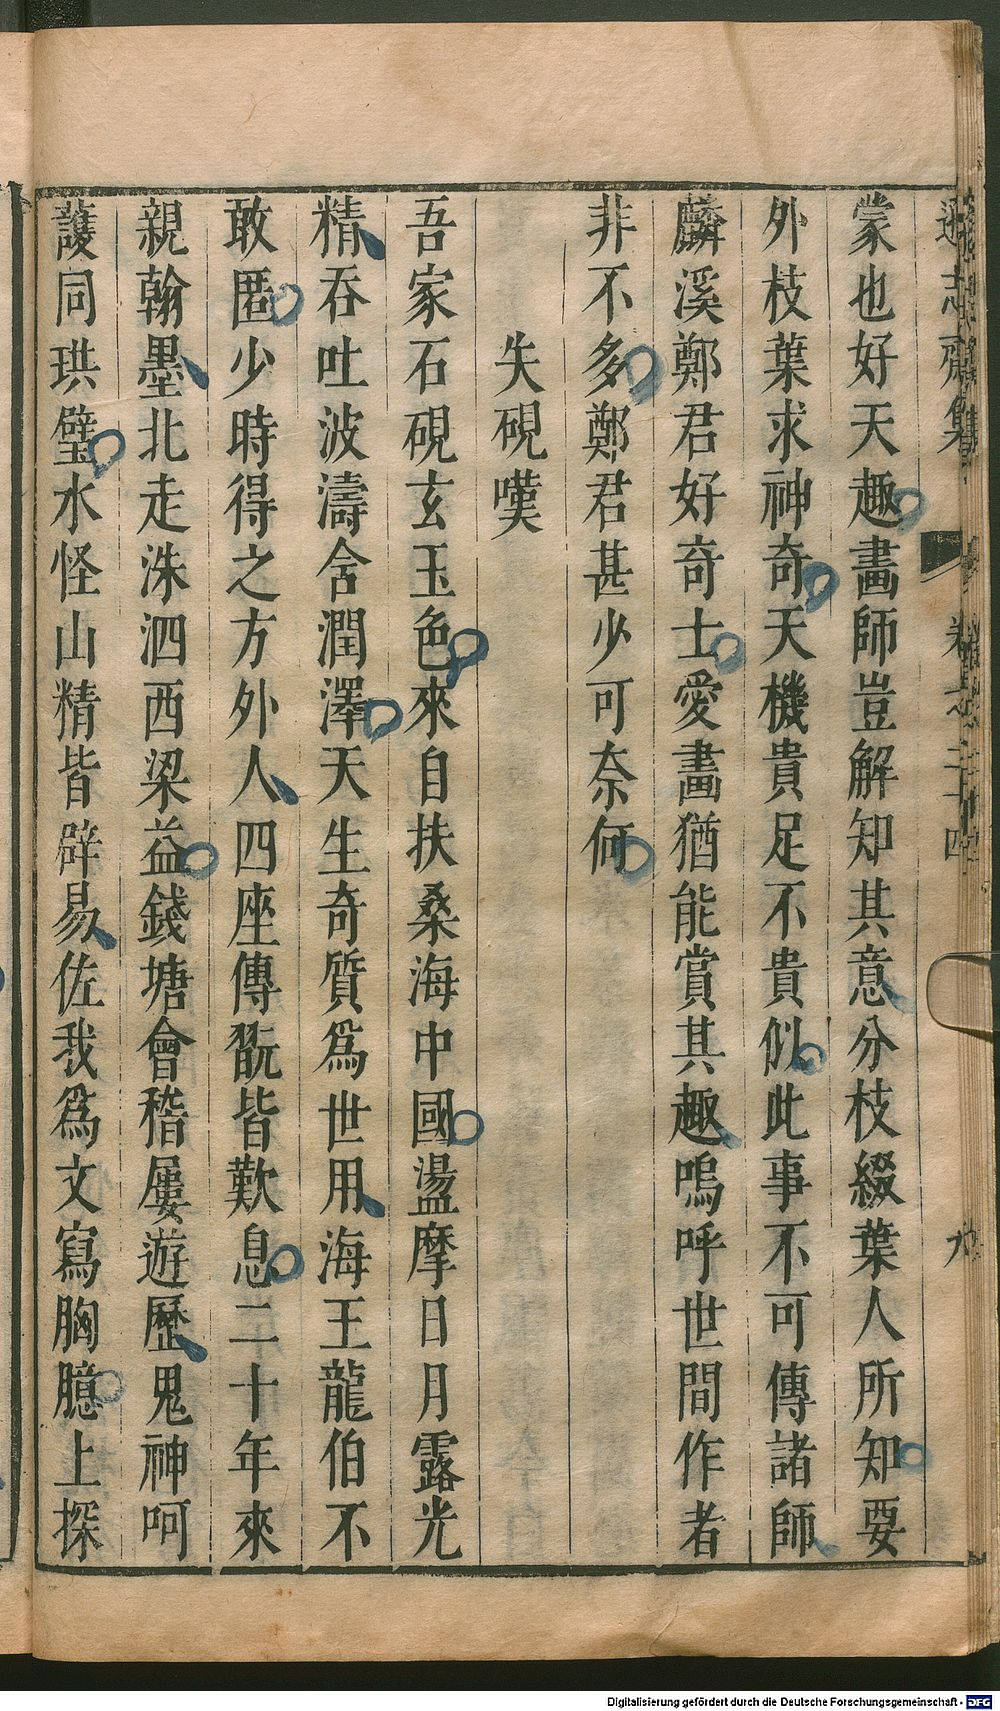 蒙也好天趣畫師豈解知其意分枝綴葉人所知要
外枝葉求神奇天機貴足不貴似此事不可傳諸師
麟溪鄭君好奇士愛畫猶能賞其趣嗚呼世間作者
非不多鄭君甚少可奈何
失硯嘆
吾家石硯玄玉色來自扶桑海中國盪摩日月露光
精吞吐波濤含潤澤天生奇質爲世用海王龍伯不
敢匿少時得之方外人四座傳翫皆歎息二十年來
親翰墨北走洙泗西梁益錢塘會稽屢遊歷鬼神呵
護同珙璧水怪山精皆辟易佐我爲文寫胸臆上探
遜志齋集
卷之二十四
九
Digitalisierung gefördert durch die Deutsche Forschungsgemeinschaft - DFG